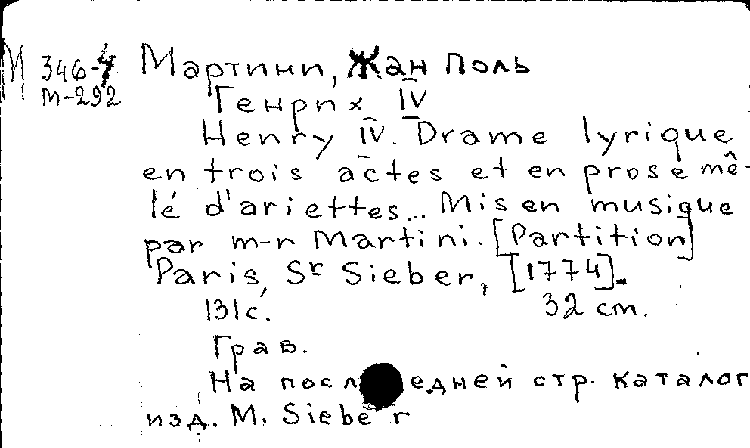 М 346-4 Мартини, Жан Поль
м-292 Генрих IV
Henry IV. Drame lyrique
en trois actes et en prose mê-
lé d'ariettes... Mis en musique
par m-r Martini. [Partition]
Paris, Sr Sieber, [1774].
131 с. 32 cm.
Грав.
На последней стр. каталог
изд. M. Sieber